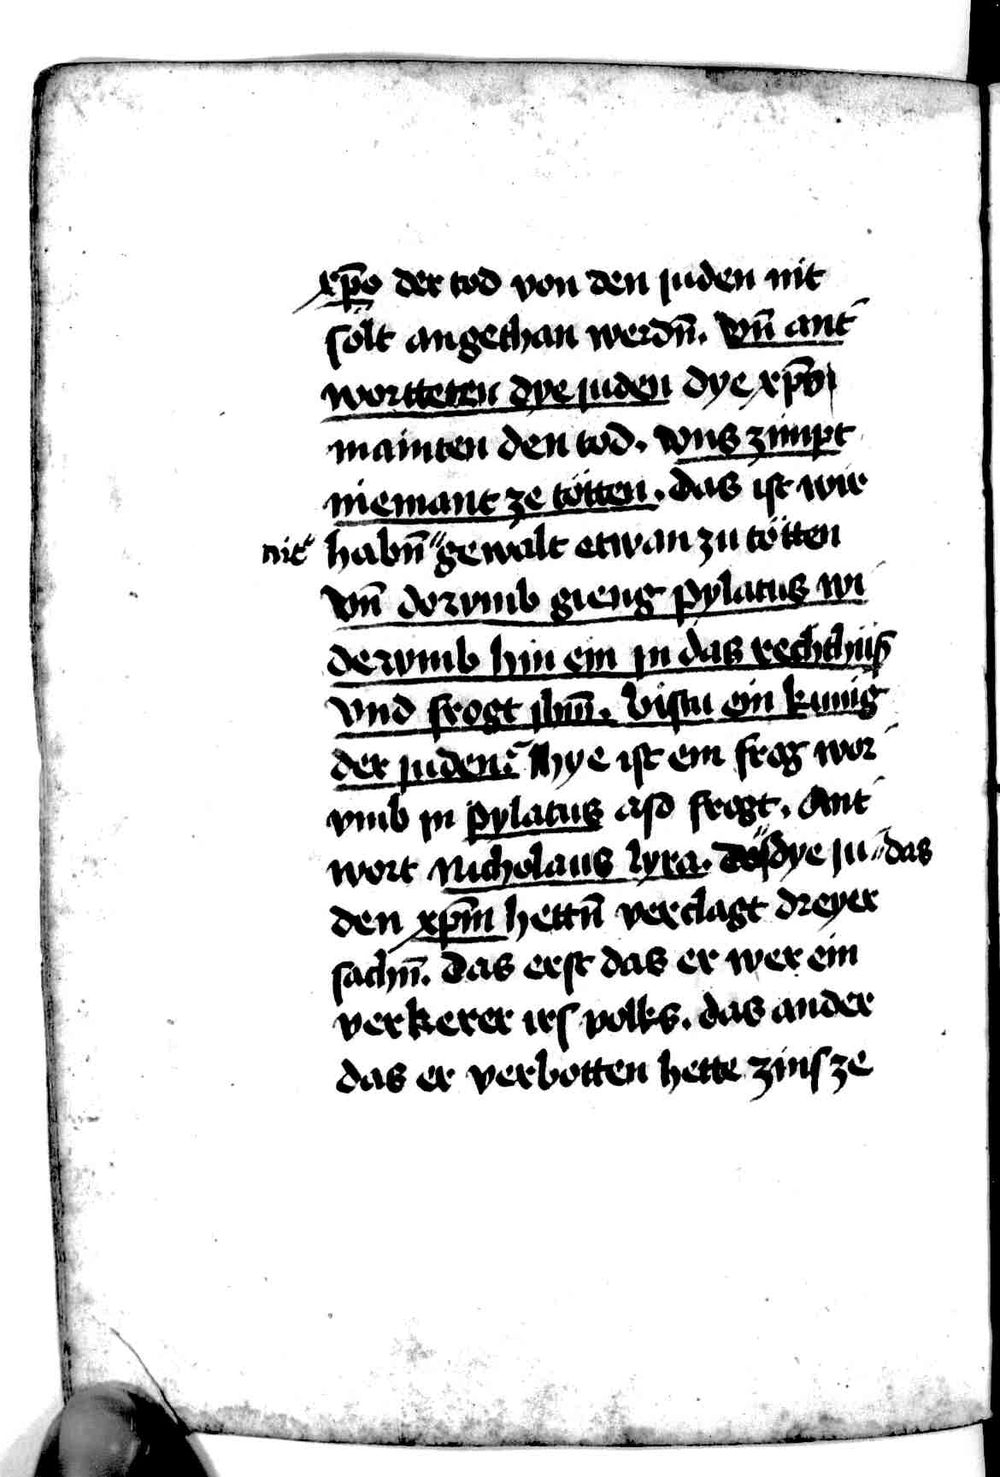 xp̄o der tod von den juden nit
sölt angethan werdn̄. Vn̄ ant
wortteten dye juden dye xp̄o
mainten den tod. vns zimpt
niemant ze tötten. das ist wir
nit habn̄ " gewalt etwan zu tötten
Vn̄ dorvmb gieng pylatus wi
dervmb hin ein jn das rechthüß
Vnd frogt jhm̄. bistu ein kunig
der juden. hye ist ein frag wor
vmb jn pylatus aso frogt. Ant
wort Nicholaus lyra. dye ju " das
den xp̄m hettn̄ verclagt dreyer
sachn̄. Das erst das er wer ein
verkerer irs volks. das ander
das er verbotten hette zins ze